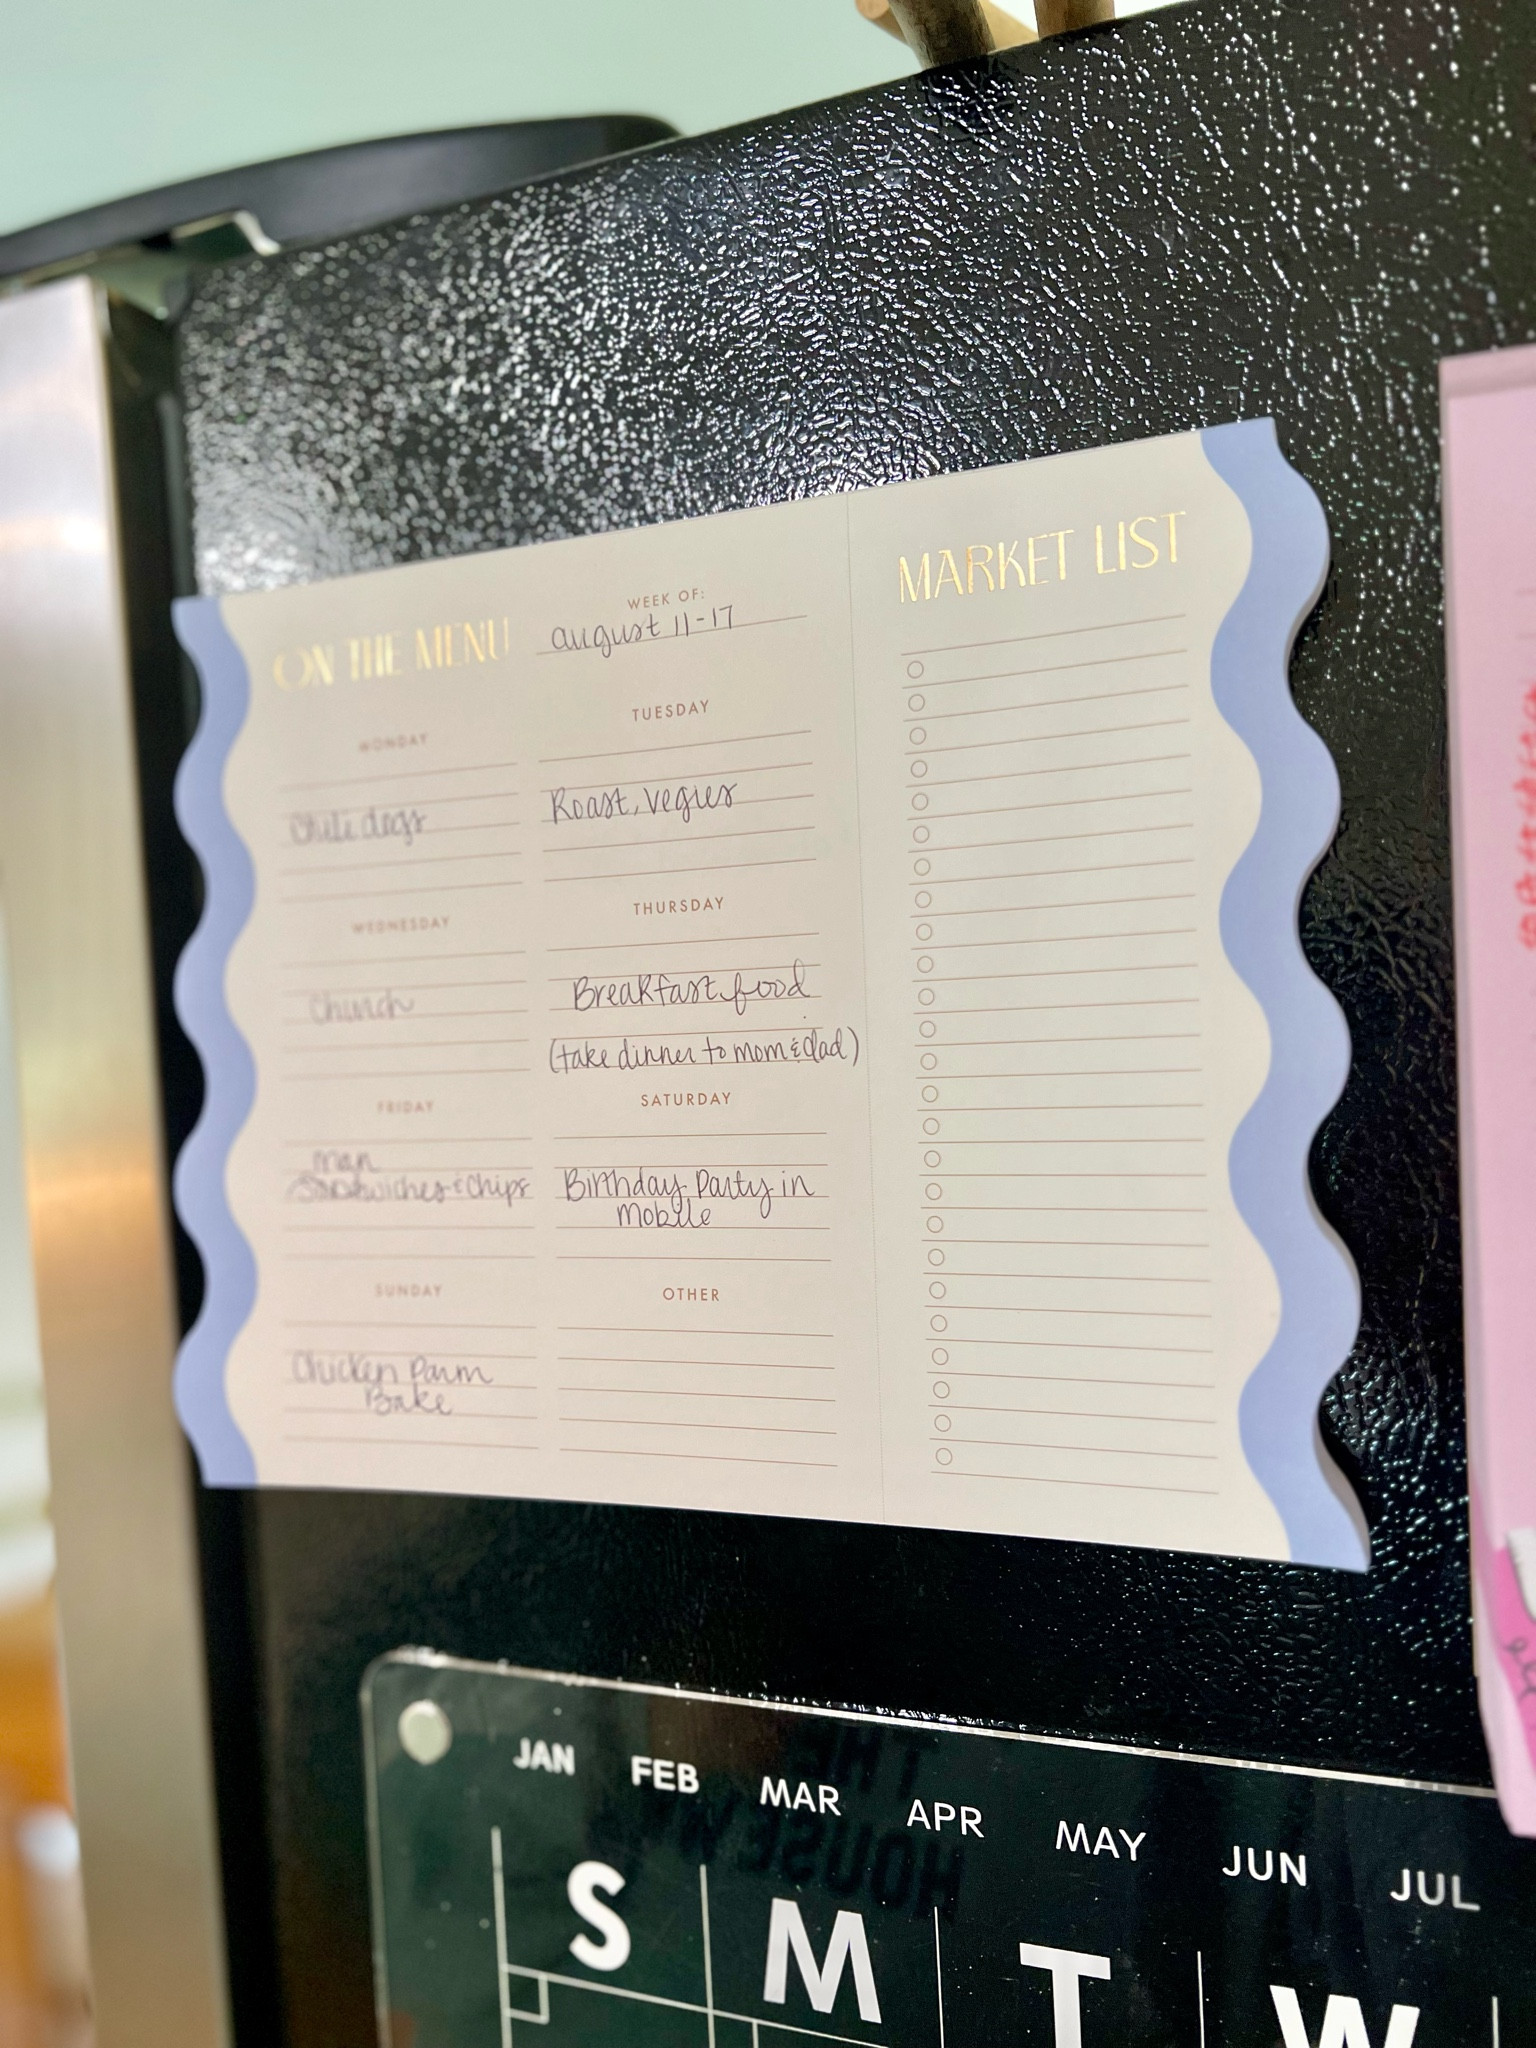 ON THE MENU
WEEK OF:
august 11-17
MONDAY
Chili dogs
TUESDAY
Roast, vegies
WEDNESDAY
Church
THURSDAY
Breakfast food
(take dinner to mom & dad)
FRIDAY
Sandwiches & Chips
SATURDAY
Birthday Party in
Mobile
SUNDAY
Chicken Parm
Bake
OTHER
MARKET LIST
JAN FEB MAR APR MAY JUN JUL
S M T W